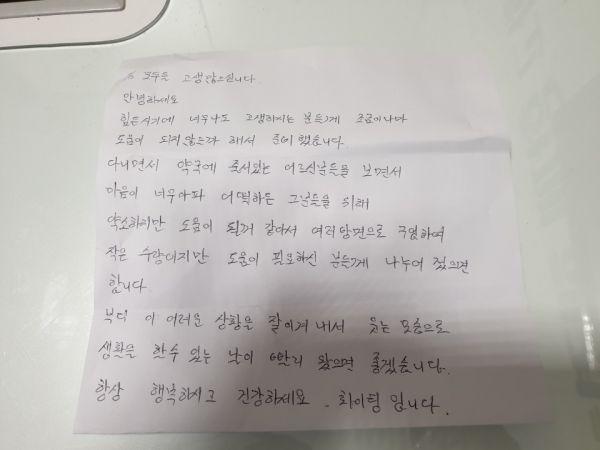 모두들 고생많으십니다.
안녕하세요
힘든시기에 너무나도 고생하시는 분들게 조금이나마
도움이 되지않는까 해서 준비했습니다
다니면서 약국에 줄서있는 어르신분들을 보면서
마음이 너무아파 어떡하든 그분들을 위해
약소하지만 도움이 될거 같아서 여러방면으로 구입하여
작은 수량이지만 도움이 필요하신 분들게 나누어 줬으면
합니다.
부디 이 어려운 상황을 잘이겨내서 웃는 모습으로
생활을 할수 있는 날이 빨리 왔으면 좋겠습니다.
항상 행복하시고 건강하세요. 화이팅 입니다.